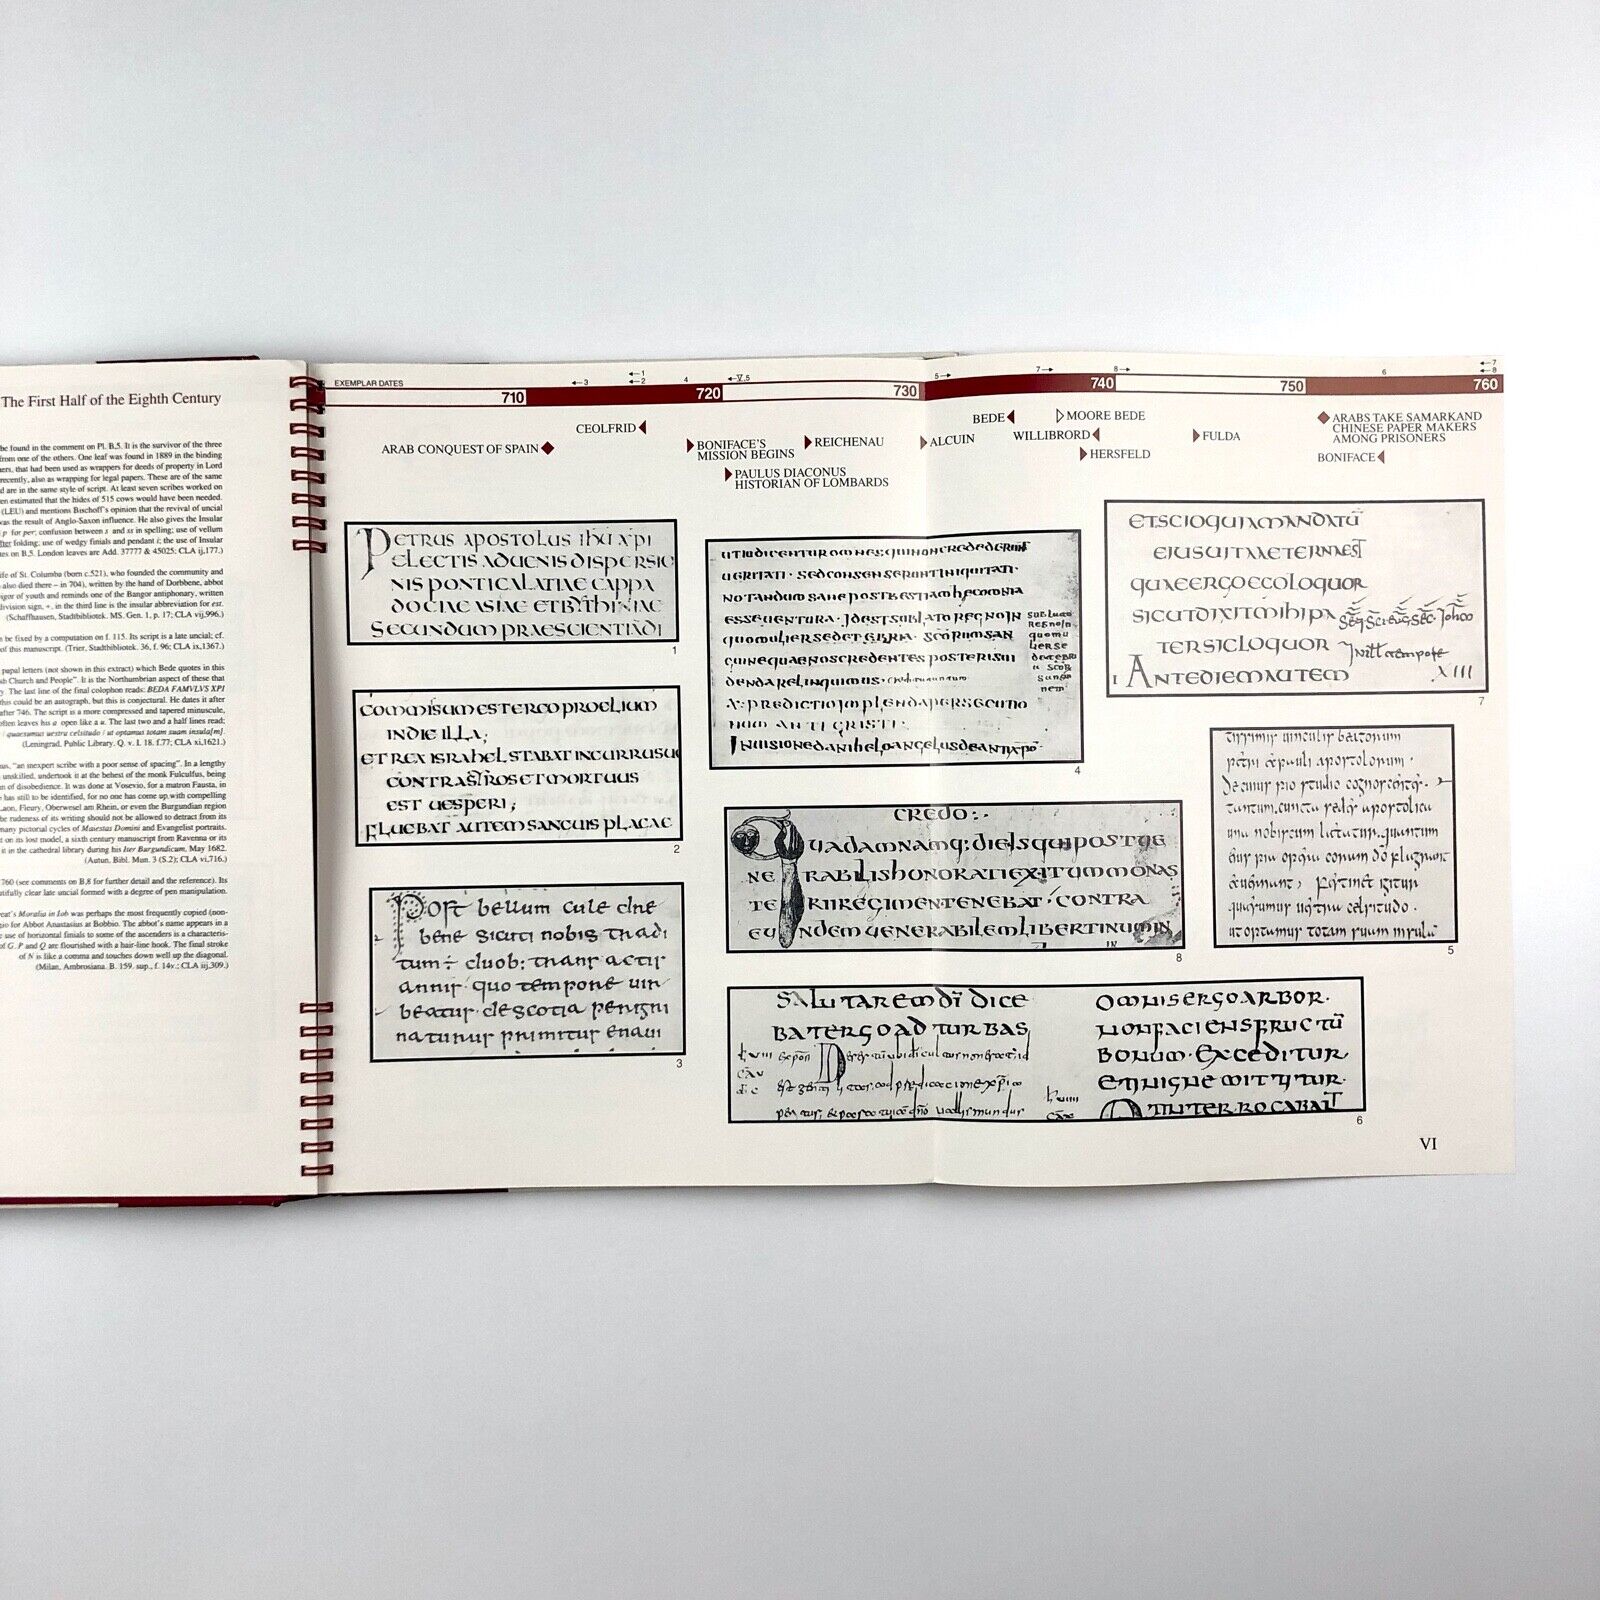 The First Half of the Eighth Century
be found in the comment on Pl. B,5. It is the survivor of the three
from one of the others. One leaf was found in 1889 in the binding
ers, that had been used as wrappers for deeds of property in Lord
recently, also as wrapping for legal papers. These are of the same
d are in the same style of script. At least seven scribes worked on
en estimated that the hides of 515 cows would have been needed.
(LEU) and mentions Bischoff's opinion that the revival of uncial
was the result of Anglo-Saxon influence. He also gives the Insular
p for per; confusion between s and ss in spelling; use of vellum
after folding; use of wedgy finials and pendant i; the use of Insular
es on B,5. London leaves are Add. 37777 & 45025; CLA ij,177.)
ife of St. Columba (born c.521), who founded the community and
also died there – in 704), written by the hand of Dorbbene, abbot
igor of youth and reminds one of the Bangor antiphonary, written
division sign, ÷, in the third line is the insular abbreviation for est.
(Schaffhausen, Stadtbibliotek. MS. Gen. 1, p. 17; CLA vij,996.)
be fixed by a computation on f. 115. Its script is a late uncial; cf.
of this manuscript. (Trier, Stadtbibliotek. 36, f. 96; CLA ix,1367.)
papal letters (not shown in this extract) which Bede quotes in this
sh Church and People". It is the Northumbrian aspect of these that
y. The last line of the final colophon reads: BEDA FAMVLVS XPI
this could be an autograph, but this is conjectural. He dates it after
after 746. The script is a more compressed and tapered minuscule,
often leaves his a open like a u. The last two and a half lines read;
quaesumus uestra celsitudo / ut optamus totam suam insula[m].
(Leningrad, Public Library. Q. v. I. 18. f.77; CLA xi,1621.)
us, "an inexpert scribe with a poor sense of spacing". In a lengthy
unskilled, undertook it at the behest of the monk Fulculfus, being
n of disobedience. It was done at Vosevio, for a matron Fausta, in
has still to be identified, for no one has come up with compelling
Laon, Fleury, Oberwesel am Rhein, or even the Burgundian region
he rudeness of its writing should not be allowed to detract from its
many pictorial cycles of Maiestas Domini and Evangelist portraits.
t on its lost model, a sixth century manuscript from Ravenna or its
it in the cathedral library during his Iter Burgundicum, May 1682.
(Autun. Bibl. Mun. 3 (S.2); CLA vi,716.)
760 (see comments on B,8 for further detail and the reference). Its
utifully clear late uncial formed with a degree of pen manipulation.
eat's Moralia in Iob was perhaps the most frequently copied (non-
io for Abbot Anastasius at Bobbio. The abbot's name appears in a
use of horizontal finials to some of the ascenders is a characteris-
of G. P and Q are flourished with a hair-line hook. The final stroke
of N is like a comma and touches down well up the diagonal.
(Milan, Ambrosiana. B. 159. sup., f. 14v.; CLA iij,309.)
EXEMPLAR DATES
←3 ←1 ←2 4 5→ 7→ 8→ 6 ←7 ←8
710 720 730 740 750 760
ARAB CONQUEST OF SPAIN
CEOLFRID
BONIFACE'S
MISSION BEGINS
PAULUS DIACONUS
HISTORIAN OF LOMBARDS
REICHENAU
ALCUIN
BEDE
MOORE BEDE
WILLIBRORD
HERSFELD
FULDA
ARABS TAKE SAMARKAND
CHINESE PAPER MAKERS
AMONG PRISONERS
BONIFACE
PETRUS APOSTOLUS IHU XPI
ELECTIS ADUENIS DISPERSIO
NIS PONTI GALATIAE CAPPA
DOCIAE ASIAE ET BYTHINIAE
SECUNDUM PRAESCIENTIA DI
1
COMMISUM EST ERGO PROELIUM
IN DIE ILLA;
ET REX ISRAHEL STABAT IN CURRU SUO
CONTRA SIROS ET MORTUUS
EST UESPERI;
FLUEBAT AUTEM SANGUIS PLAGAE
2
Post bellum cule
bene sicuti nobis tradi
tum ÷
annis quo tempore uir
beatus de scotia perigri
naturus primitus enaui
3
UTIUDICENTUROMNESQUINONCREDEDERUNT
UERITATI· SEDCONSENSERUNTINIQUITATI·
NOTANDUMSANEPOSTBESTIAM
ESSEUENTURA· IDESTSUBLATOREGNOIN
QUOMULIERSEDETEBRIA· SCORUMSAN
GUINEQUAENOSCREDENTESPOSTERISUI
DENDARELINQUIMUS·
X: PREDICTIOIMPLENDAPERSECUTIO
NUM ANTICRISTI·
INUISIONEDANIHELOANGELUSDEANTIXPO·
4
CREDO:·
QUADAMNAMQ; DIE IS QUI POST
RABILIS HONORATI EXITUM MONAS
TE RII REGIMEN TENEBAT· CONTRA
EUNDEM UENERABILEM LIBERTINUM IN
8
SALUTAREM DI DICE
BATERGO AD TURBAS
OMNIS ERGO ARBOR·
NON FACIENS FRUCTU
BONUM· EXCEDITUR
ET IN IGNE MITTITUR·
6
ET SCIO QUIA MANDATU
EIUS UITA AETERNA EST
QUAE ERGO EGO LOQUOR
SICUT DIXIT MIHI PA
TER SIC LOQUOR
ANTE DIEM AUTEM
XIII
7
petri et pauli apostolorum·
una nobiscum
ut optamus totam suam insula
5
VI